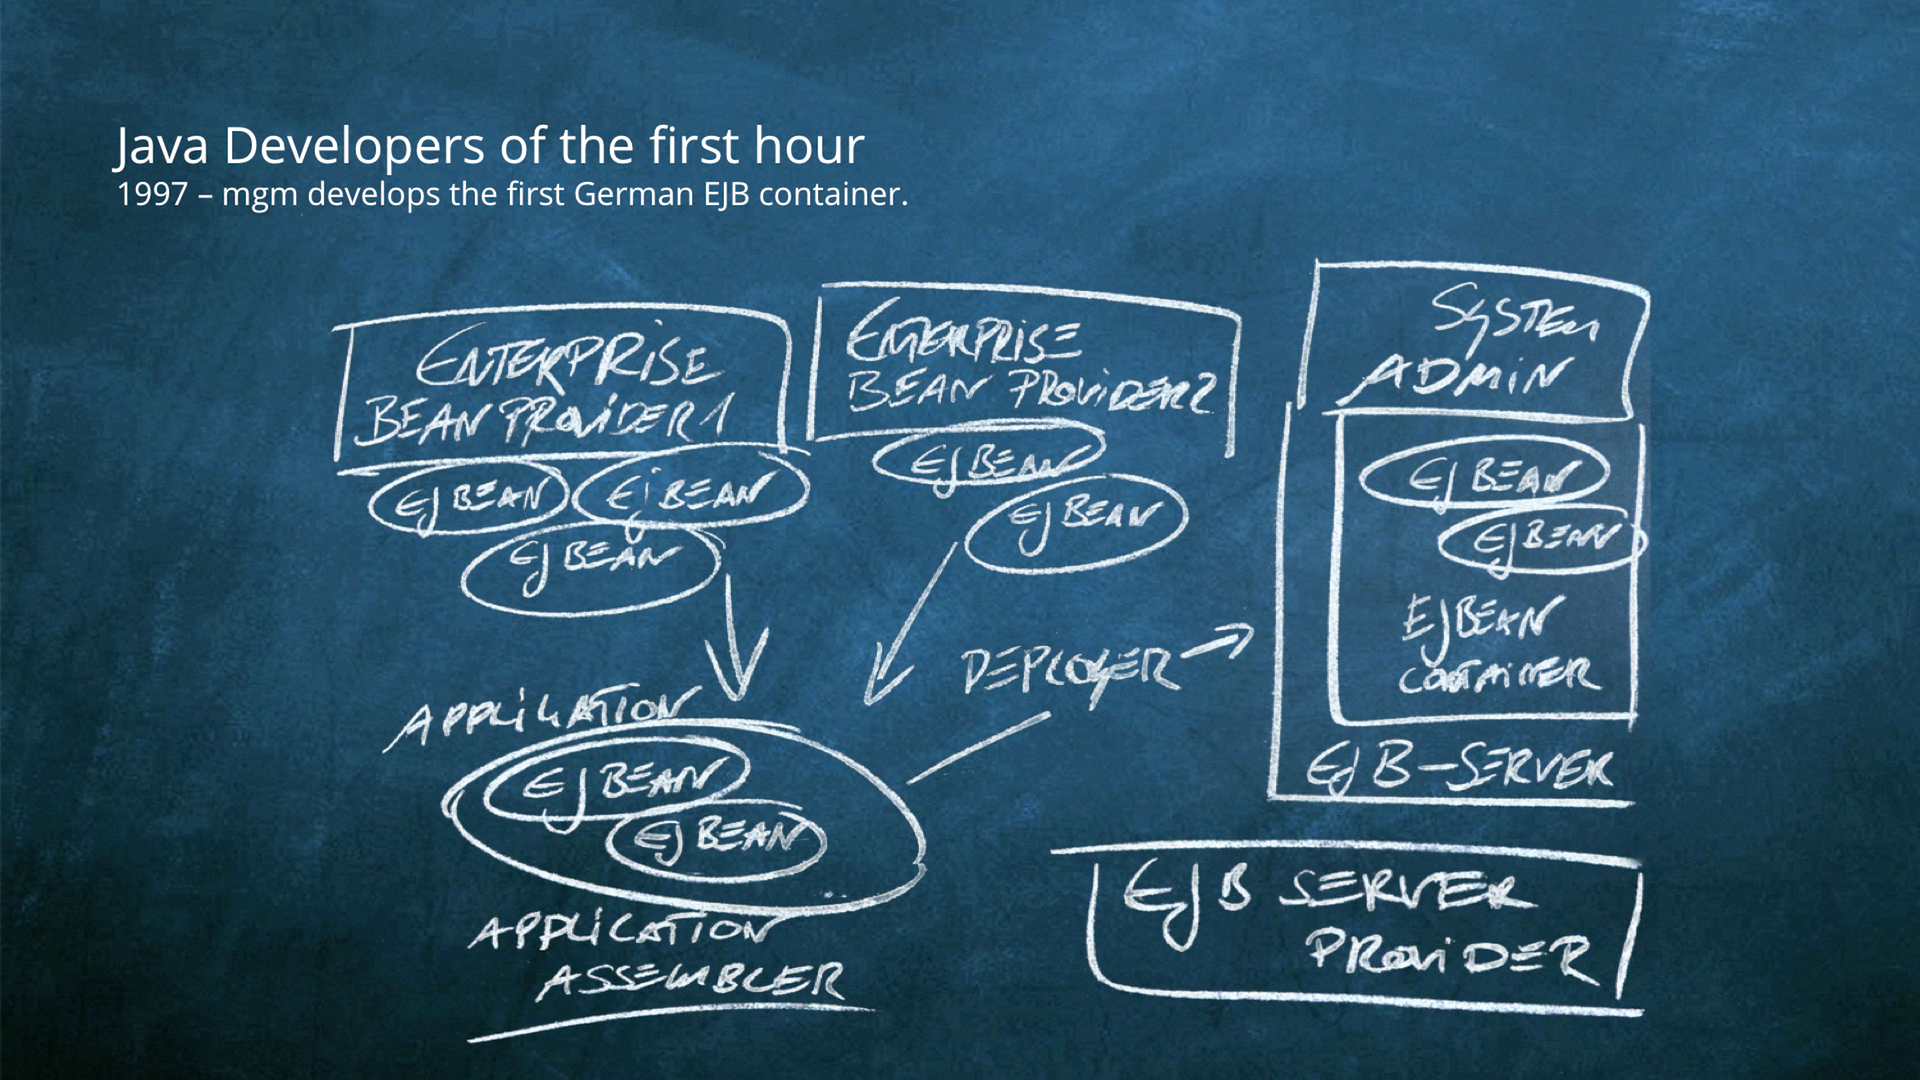 Java Developers of the first hour
1997 – mgm develops the first German EJB container.
ENTERPRISE
BEAN PROVIDER 1
EJ BEAN
Ej BEAN
EJ BEAN
ENTERPRISE
BEAN PROVIDER 2
EJ BEAN
EJ BEAN
SYSTEM
ADMIN
EJ BEAN
EJ BEAN
EJ BEAN
CONTAINER
EJ B-SERVER
DEPLOYER
APPLICATION
EJ BEAN
EJ BEAN
APPLICATION
ASSEMBLER
EJ B SERVER
PROVIDER